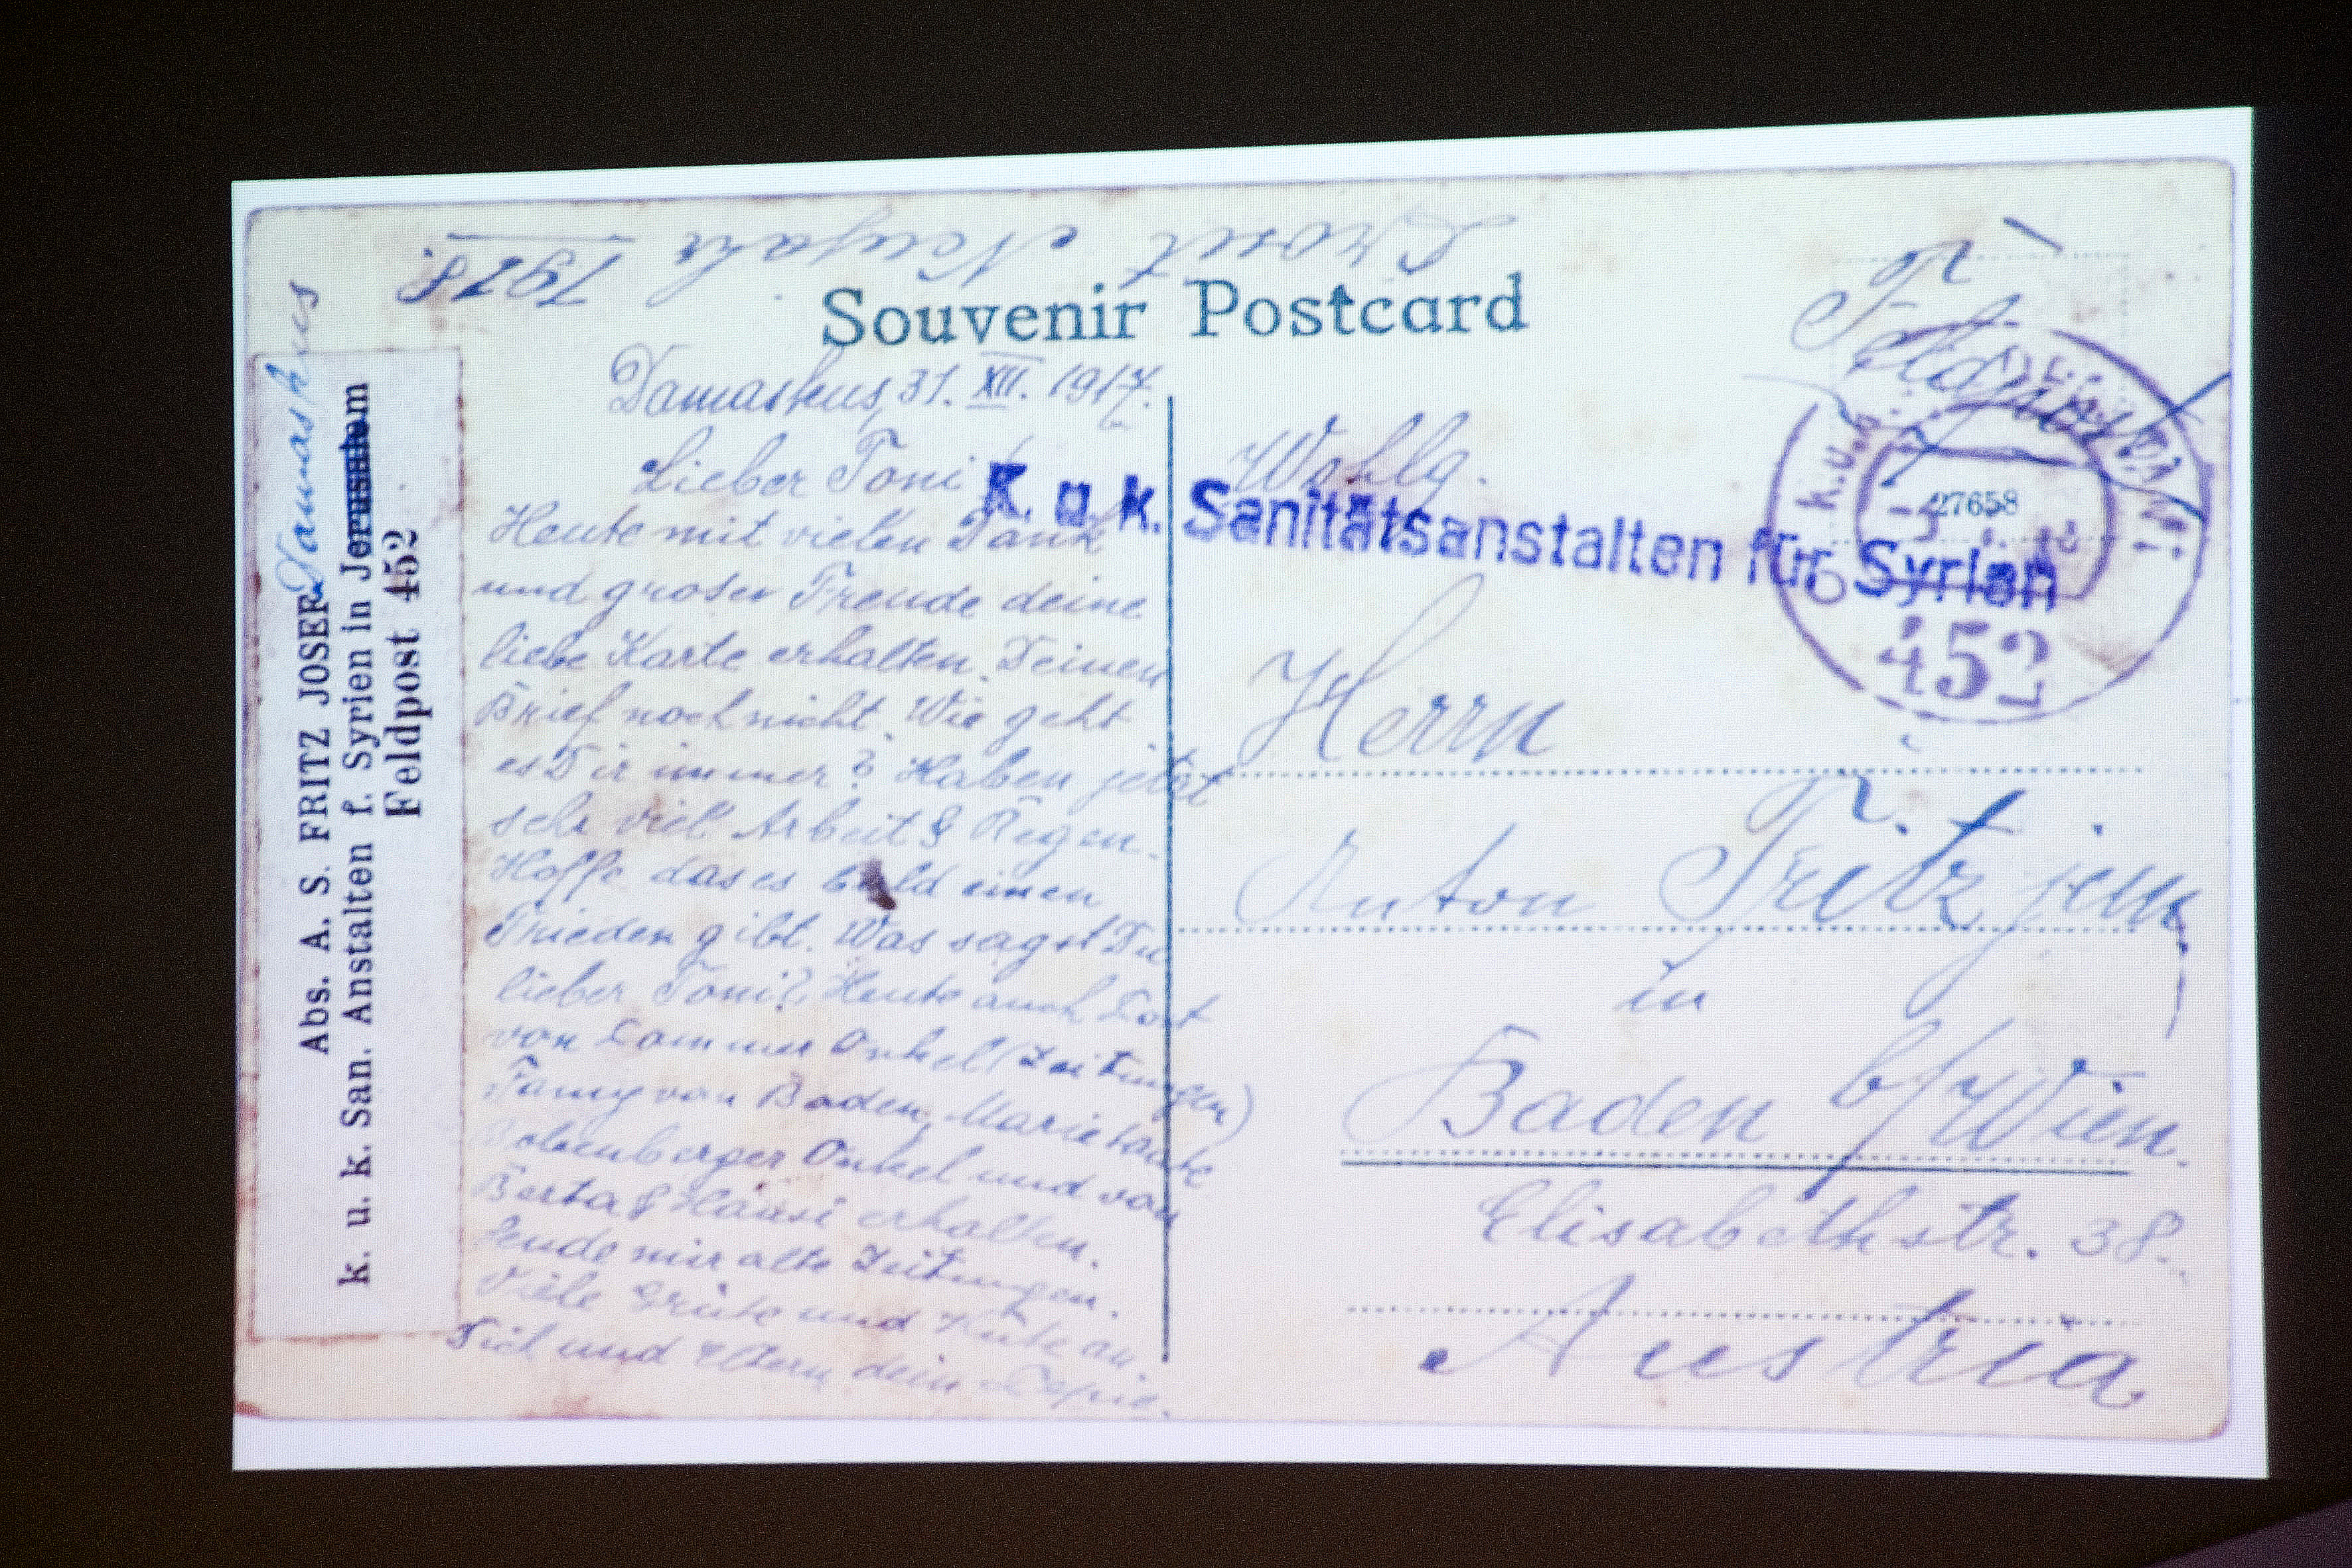 Prosit Neujahr 1918.
Souvenir Postcard
Damaskus, 31. XII. 1917.
Lieber Toni!
Heute mit vielen Dank
und groser Freude deine
liebe Karte erhalten. Deinen
Brief noch nicht. Wie geht
es Dir immer? Haben jetzt
sehr viel Arbeit & Regen.
Hoffe das es bald einen
Frieden gibt. Was sagst Du
lieber Toni? Heute auch Post
von Onkel (Zeitungen)
Fanny von Baden, Marie tante
Onkel und von
Berta & Hansi erhalten.
Sende mir alte Zeitungen.
Viele Grüße und Küße an
Dich und Eltern dein Pepie.
Damaskus
Abs. A. S. FRITZ JOSEF
k. u. k. San. Anstalten f. Syrien in Jerusalem
Feldpost 452
Feldpost
K. u. k. Sanitätsanstalten für Syrien
k.u.k.
27658
452
Wohlg.
Herrn
Anton Fritz jun.
in
Baden b/Wien.
Elisabethstr. 38.
Austria